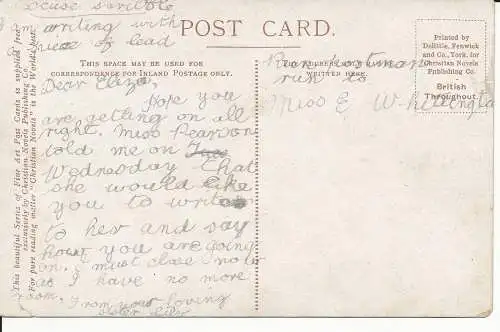 scuse scribble
I am writing with
piece of lead
POST CARD.
THIS SPACE MAY BE USED FOR
CORRESPONDENCE FOR INLAND POSTAGE ONLY.
Dear Eliza,
Hope you
are getting on all
right. Miss Pearson
told me on Tues
Wednesday that
she would like
you to write
to her and say
how you are going
on. I must close now
as I have no more
room. From your loving
sister
WRITTEN HERE.
Run Postman
run to
Miss E Whittington
Printed by
Delittle, Fenwick
and Co., York, for
Christian Novels
Publishing Co.
British
Throughout.
This beautiful Series of Fine Art Post Cards is supplied free
exclusively by Christian Novels Publishing Co.
For pure reading matter "Christian Novels" is the World's best.